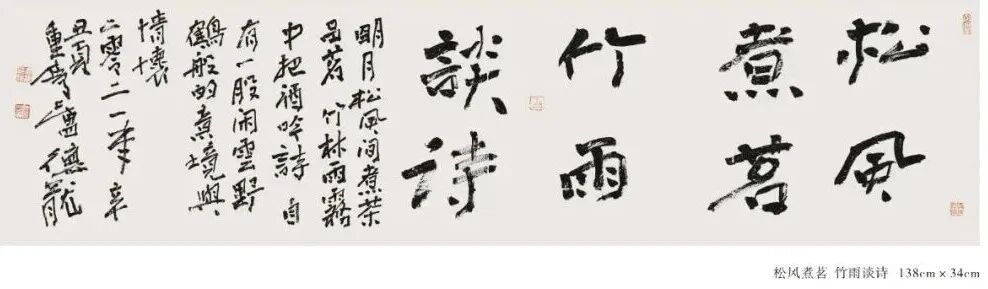 松風
煮茗
竹雨
談詩
明月松風间煮茶
品茗竹林雨霧
中把酒吟詩自
有一股闲雲野
鶴般的意境與
情懷
二零二一年辛
丑夏
重慶盧德龍
松风煮茗 竹雨谈诗 138cm × 34cm